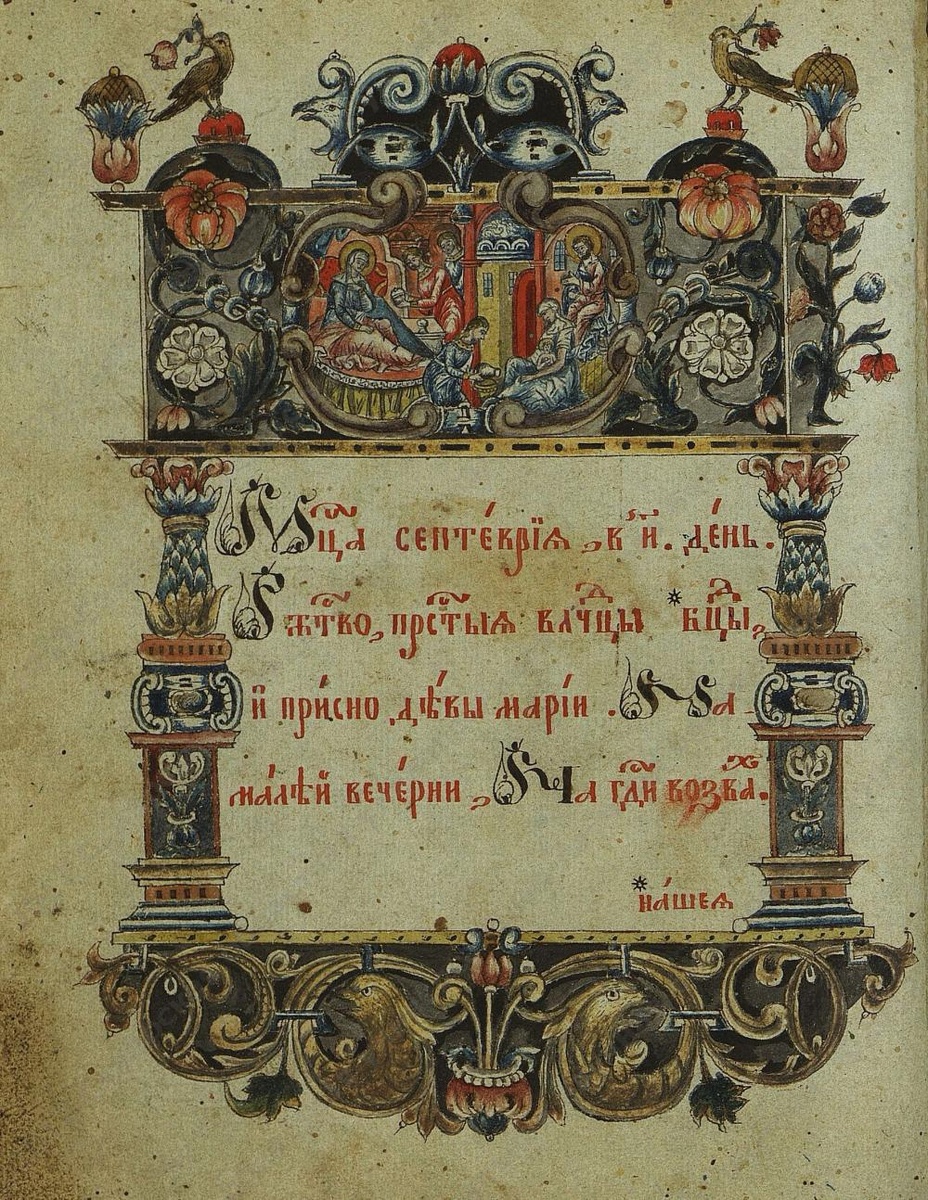 Мⷭ҇ца септе́врїѧ , в и҃. де́нь.
Рⷤтⷭ҇во, прⷭ҇тыѧ влⷣчцы * бⷣцы,
и҆ при́сно дѣ́вы марі́и . На
ма́лѣй вече́рни , На гдⷭ҇и возва́ⷯ.
* на́шеѧ